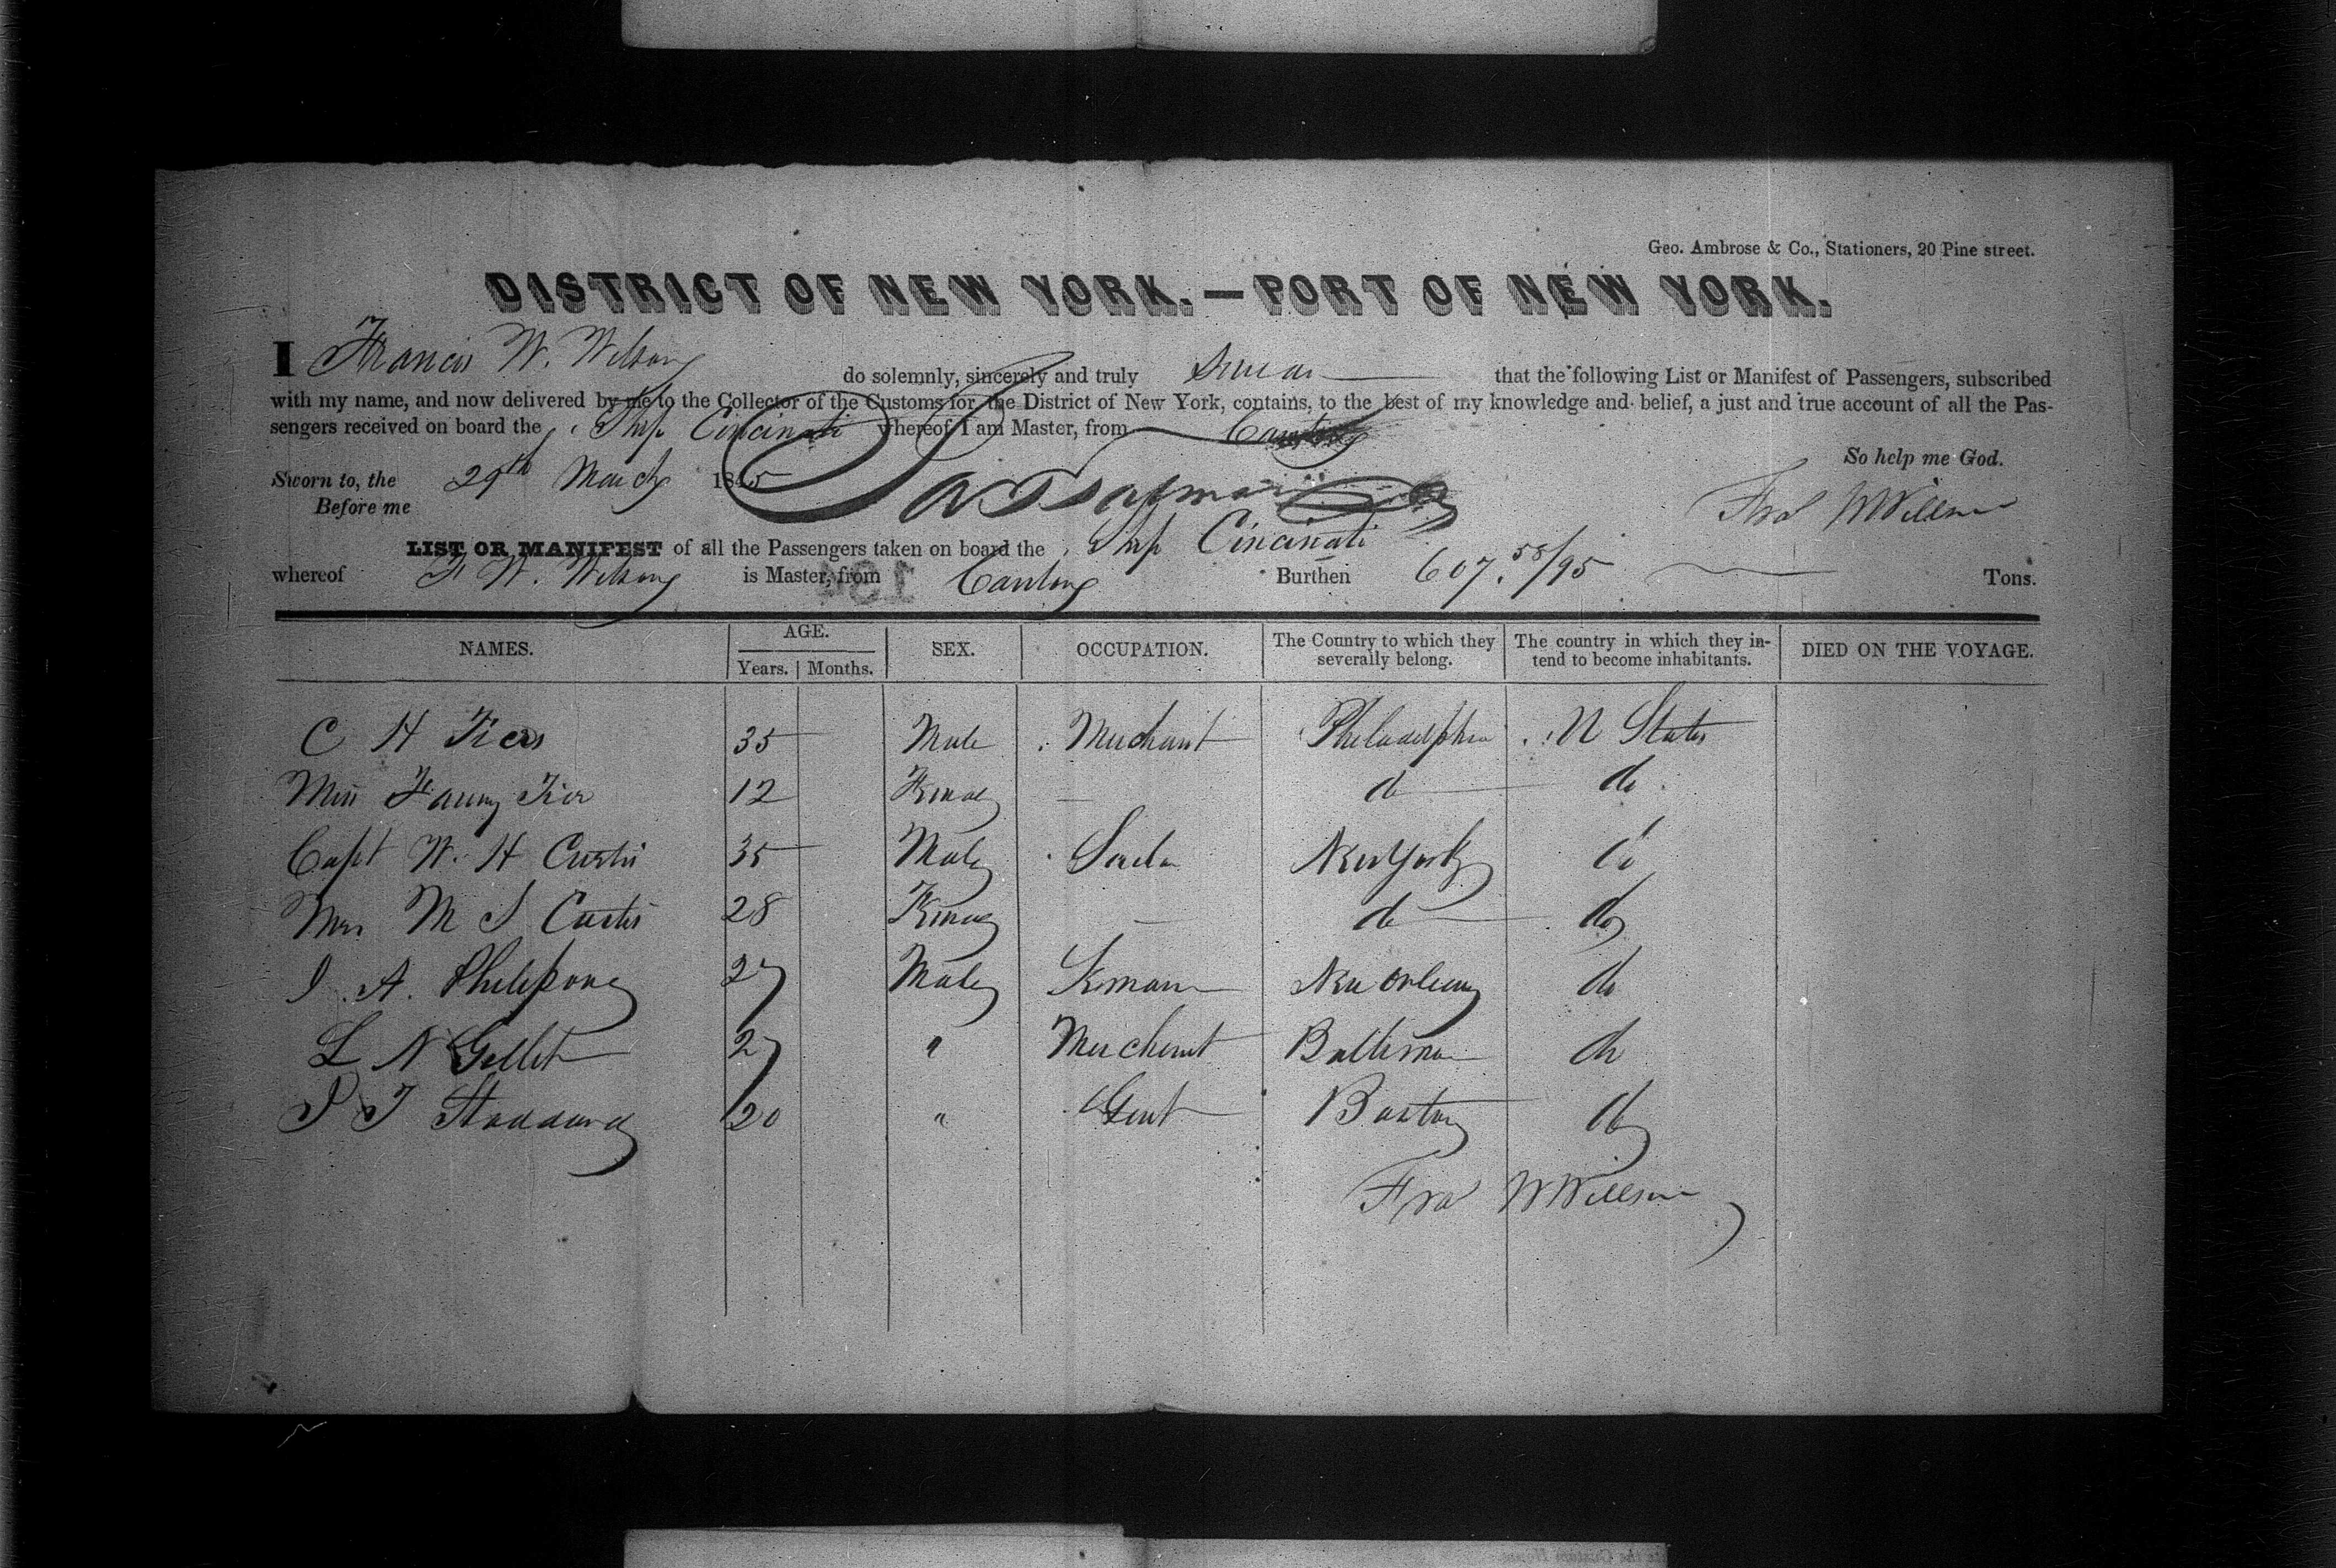 Geo. Ambrose & Co., Stationers, 20 Pine street.
DISTRICT OF NEW YORK.—PORT OF NEW YORK.
I Francis W. Wilson do solemnly, sincerely and truly swear that the following List or Manifest of Passengers, subscribed
with my name, and now delivered by me to the Collector of the Customs for the District of New York, contains, to the best of my knowledge and belief, a just and true account of all the Pas-
sengers received on board the Ship Cincinati whereof I am Master, from Canton
So help me God.
Sworn to, the 29th March 1845
Before me
Fras W Willson
LIST OR MANIFEST of all the Passengers taken on board the Ship Cincinati
whereof F W. Wilson is Master, from Canton Burthen 607. 58/95 Tons.
NAMES. AGE. SEX. OCCUPATION. The Country to which they severally belong. The country in which they intend to become inhabitants. DIED ON THE VOYAGE.
Years. Months.
C H Tiers 35 Male Merchant Philadelphia U States
Miss Fanny Tier 12 Female — do do
Capt W. H Curtis 35 Male New York do
Mrs M S Curtis 28 Female — do do
J. A. 27 Male Seman New Orleans do
L N Gellet 27 " Merchant Baltimore do
J T Stoddard 20 " Gent Boston do
Fras W Willson